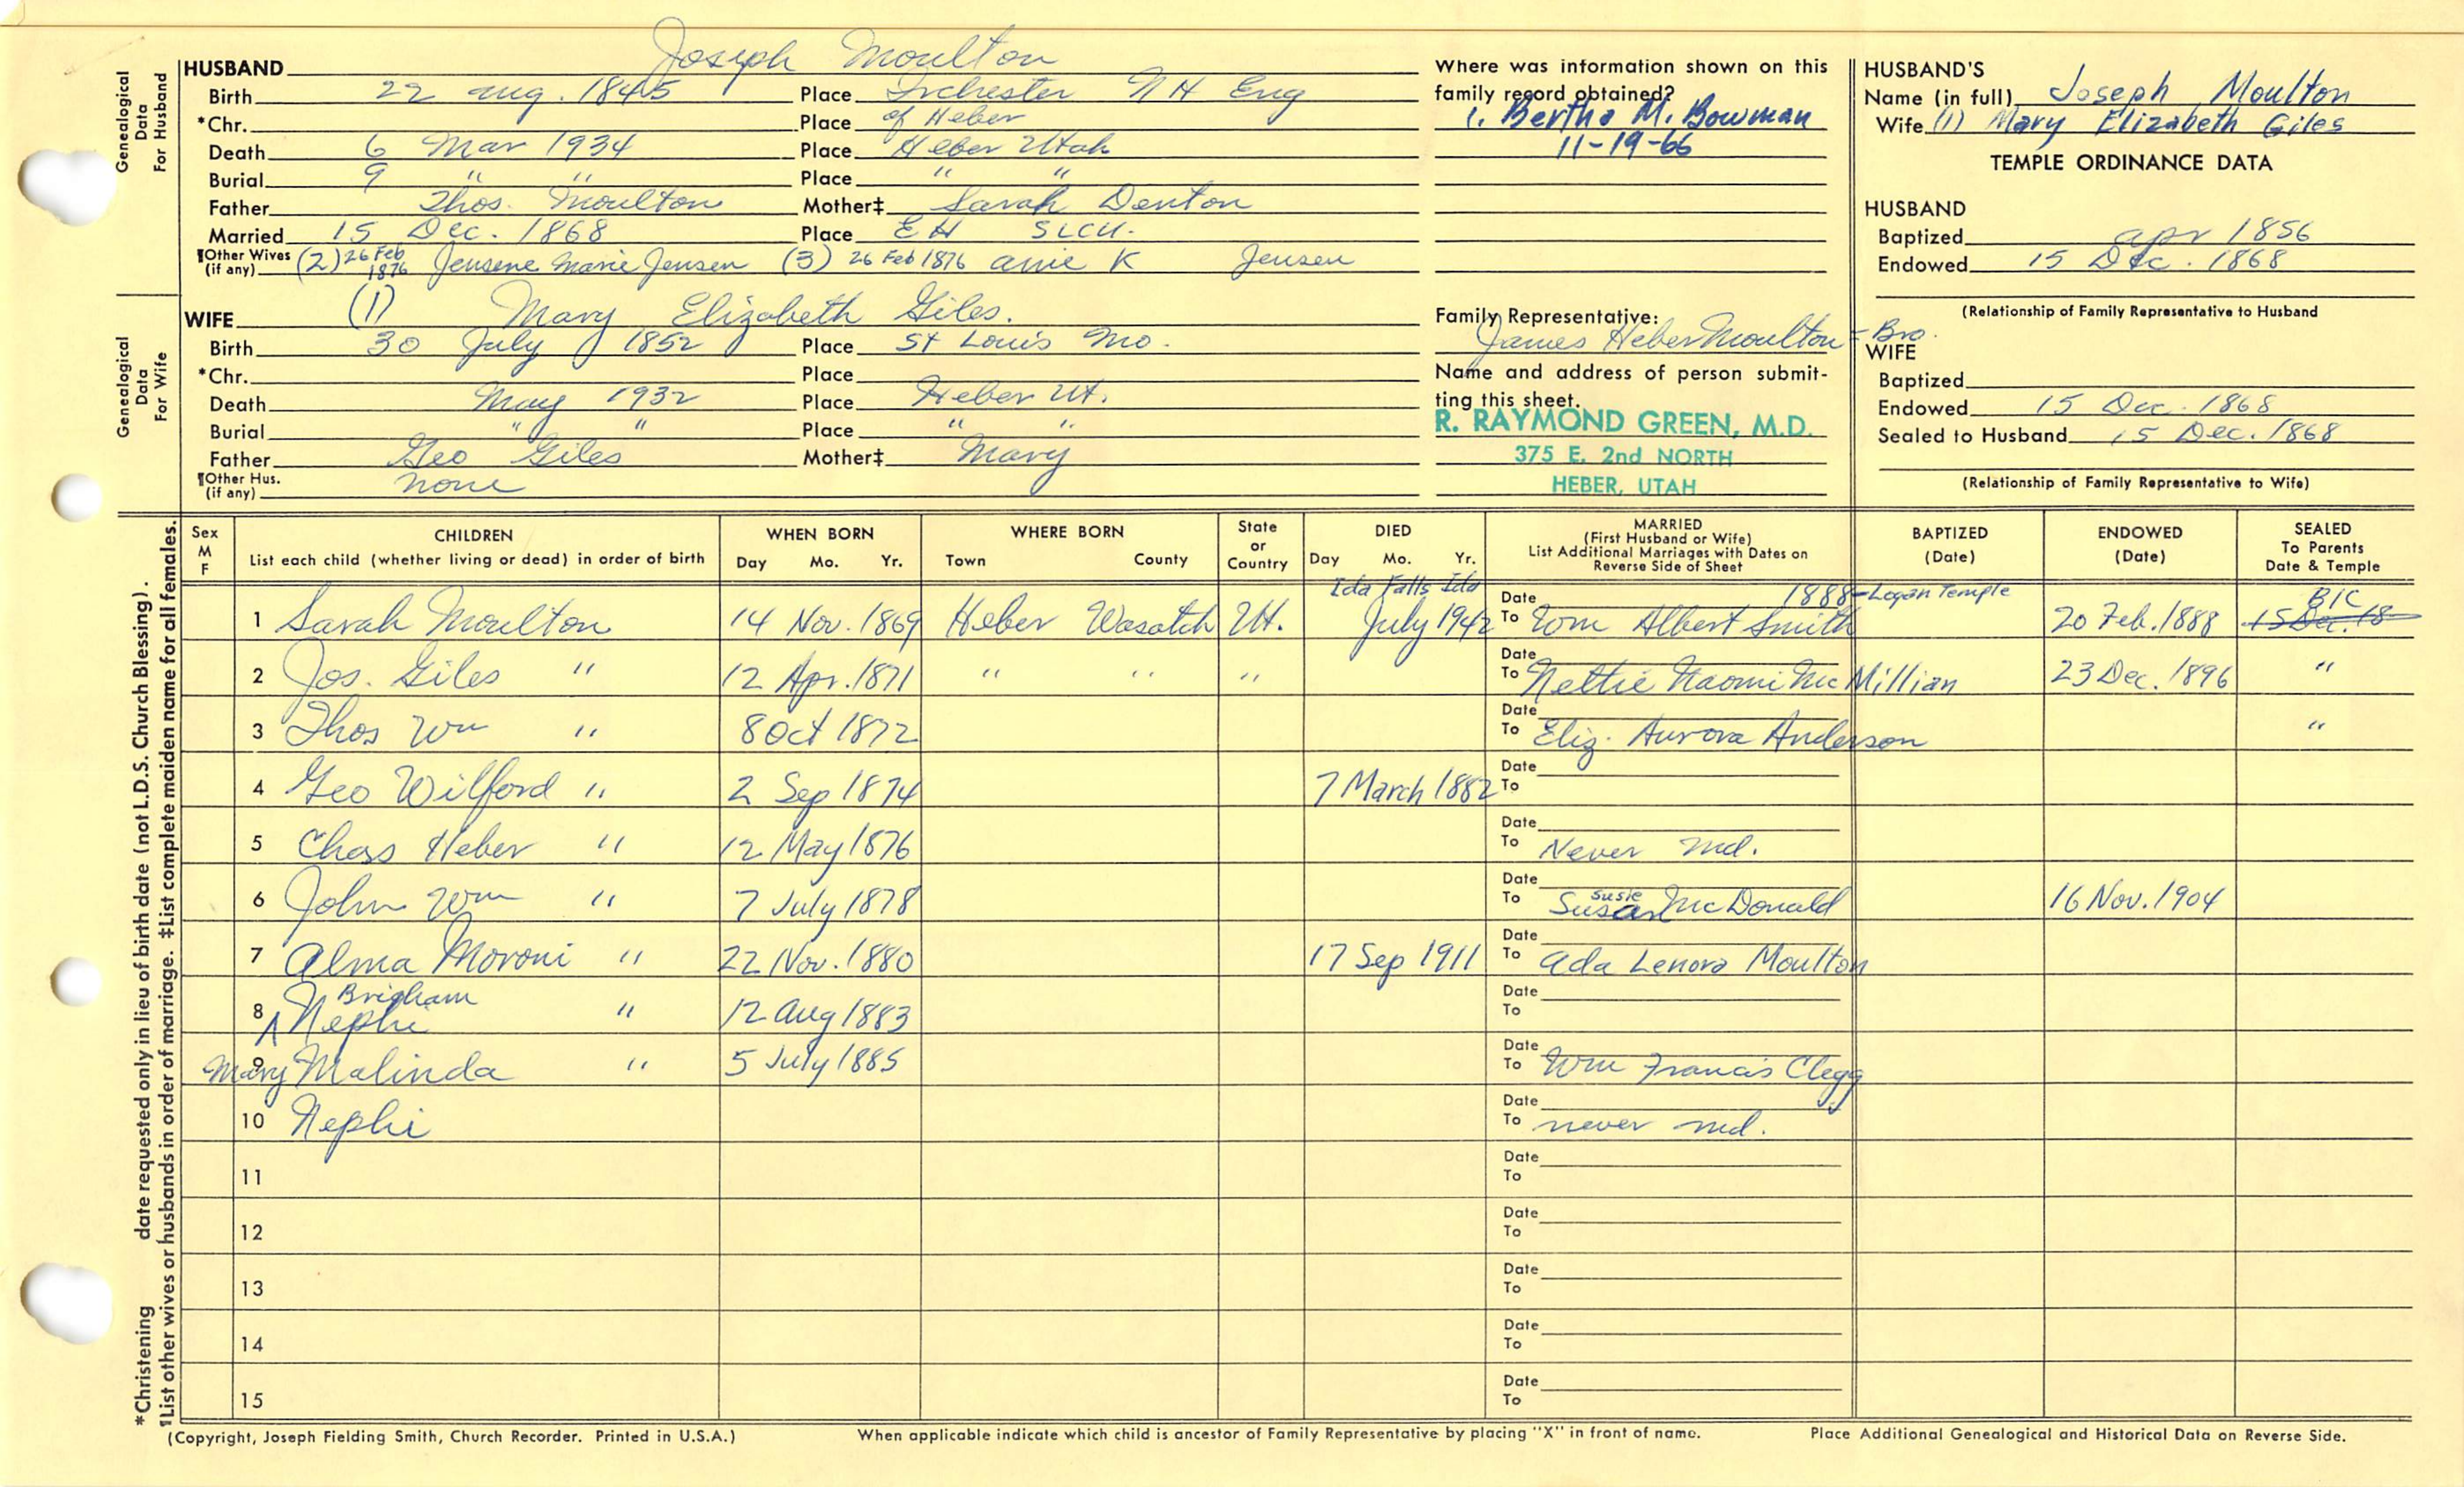 Genealogical Data For Husband
HUSBAND Joseph Moulton
Birth 22 Aug. 1845 Place Irchester N H Eng
*Chr. Place of Heber
Death 6 Mar 1934 Place Heber Utah
Burial 9 " " Place " "
Father Thos. Moulton Mother‡ Sarah Denton
Married 15 Dec. 1868 Place E H SLCU.
¶Other Wives (if any) (2) 26 Feb 1876 Jensene Marie Jensen (3) 26 Feb 1876 Anie K Jensen
Genealogical Data For Wife
WIFE (1) Mary Elizabeth Giles.
Birth 30 July 1852 Place St Louis Mo.
*Chr. Place
Death May 1932 Place Heber Ut.
Burial " " Place " "
Father Geo Giles Mother‡ Mary
¶Other Hus. (if any) none
Where was information shown on this
family record obtained?
1. Bertha M. Bowman
11-19-66
Family Representative:
James Heber Moulton = Bro.
Name and address of person submit-
ting this sheet.
R. RAYMOND GREEN, M.D.
375 E. 2nd NORTH
HEBER, UTAH
HUSBAND'S
Name (in full) Joseph Moulton
Wife (1) Mary Elizabeth Giles
TEMPLE ORDINANCE DATA
HUSBAND
Baptized Apr 1856
Endowed 15 Dec. 1868
(Relationship of Family Representative to Husband
WIFE
Baptized
Endowed 15 Dec. 1868
Sealed to Husband 15 Dec. 1868
(Relationship of Family Representative to Wife)
Sex M F
CHILDREN
List each child (whether living or dead) in order of birth
WHEN BORN
Day Mo. Yr.
WHERE BORN
Town County
State or Country
DIED
Day Mo. Yr.
MARRIED
(First Husband or Wife)
List Additional Marriages with Dates on
Reverse Side of Sheet
BAPTIZED
(Date)
ENDOWED
(Date)
SEALED
To Parents
Date & Temple
Ida Falls Ida Date 1888-Logan Temple BIC
1 Sarah Moulton 14 Nov. 1869 Heber Wasatch Ut. July 1942 To Wm Albert Smith 20 Feb. 1888 15 Dec. 18
Date
2 Jos. Giles " 12 Apr. 1871 " " " To Nettie Naomi McMillian 23 Dec. 1896 "
Date
3 Thos Wm " 8 Oct 1872 To Eliz. Aurora Anderson "
Date
4 Geo Wilford " 2 Sep 1874 7 March 1882 To
Date
5 Chas Heber " 12 May 1876 To Never md.
Date Susie
6 John Wm " 7 July 1878 To Susan McDonald 16 Nov. 1904
Date
7 Alma Moroni " 22 Nov. 1880 17 Sep 1911 To Ada Lenora Moulton
Brigham Date
8 Nephi " 12 Aug 1883 To
Date
9 Mary Malinda " 5 July 1885 To Wm Francis Clegg
Date
10 Nephi To never md.
Date
11 To
Date
12 To
Date
13 To
Date
14 To
Date
15 To
*Christening date requested only in lieu of birth date (not L.D.S. Church Blessing).
¶List other wives or husbands in order of marriage. ‡List complete maiden name for all females.
(Copyright, Joseph Fielding Smith, Church Recorder. Printed in U.S.A.) When applicable indicate which child is ancestor of Family Representative by placing "X" in front of name. Place Additional Genealogical and Historical Data on Reverse Side.